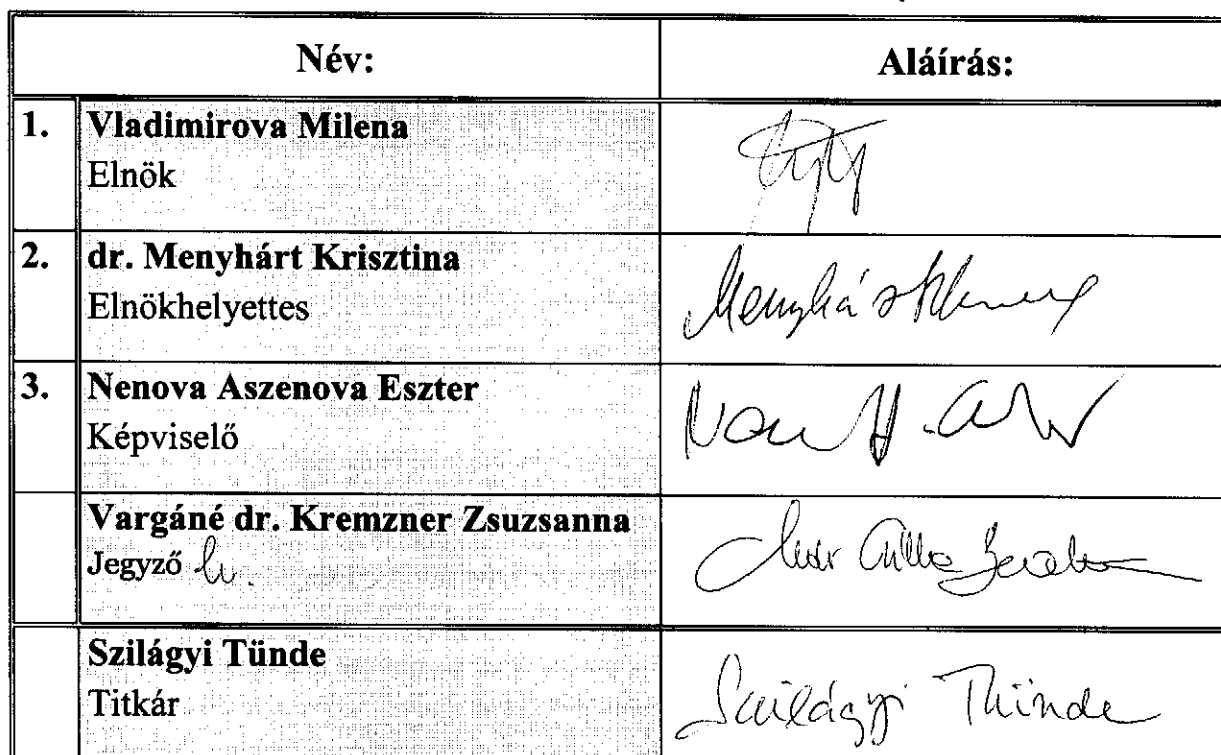 Név: Aláírás:
1. Vladimirova Milena
Elnök
2. dr. Menyhárt Krisztina
Elnökhelyettes
3. Nenova Aszenova Eszter
Képviselő
Vargáné dr. Kremzner Zsuzsanna
Jegyző h.
Szilágyi Tünde
Titkár Szilágyi Tünde